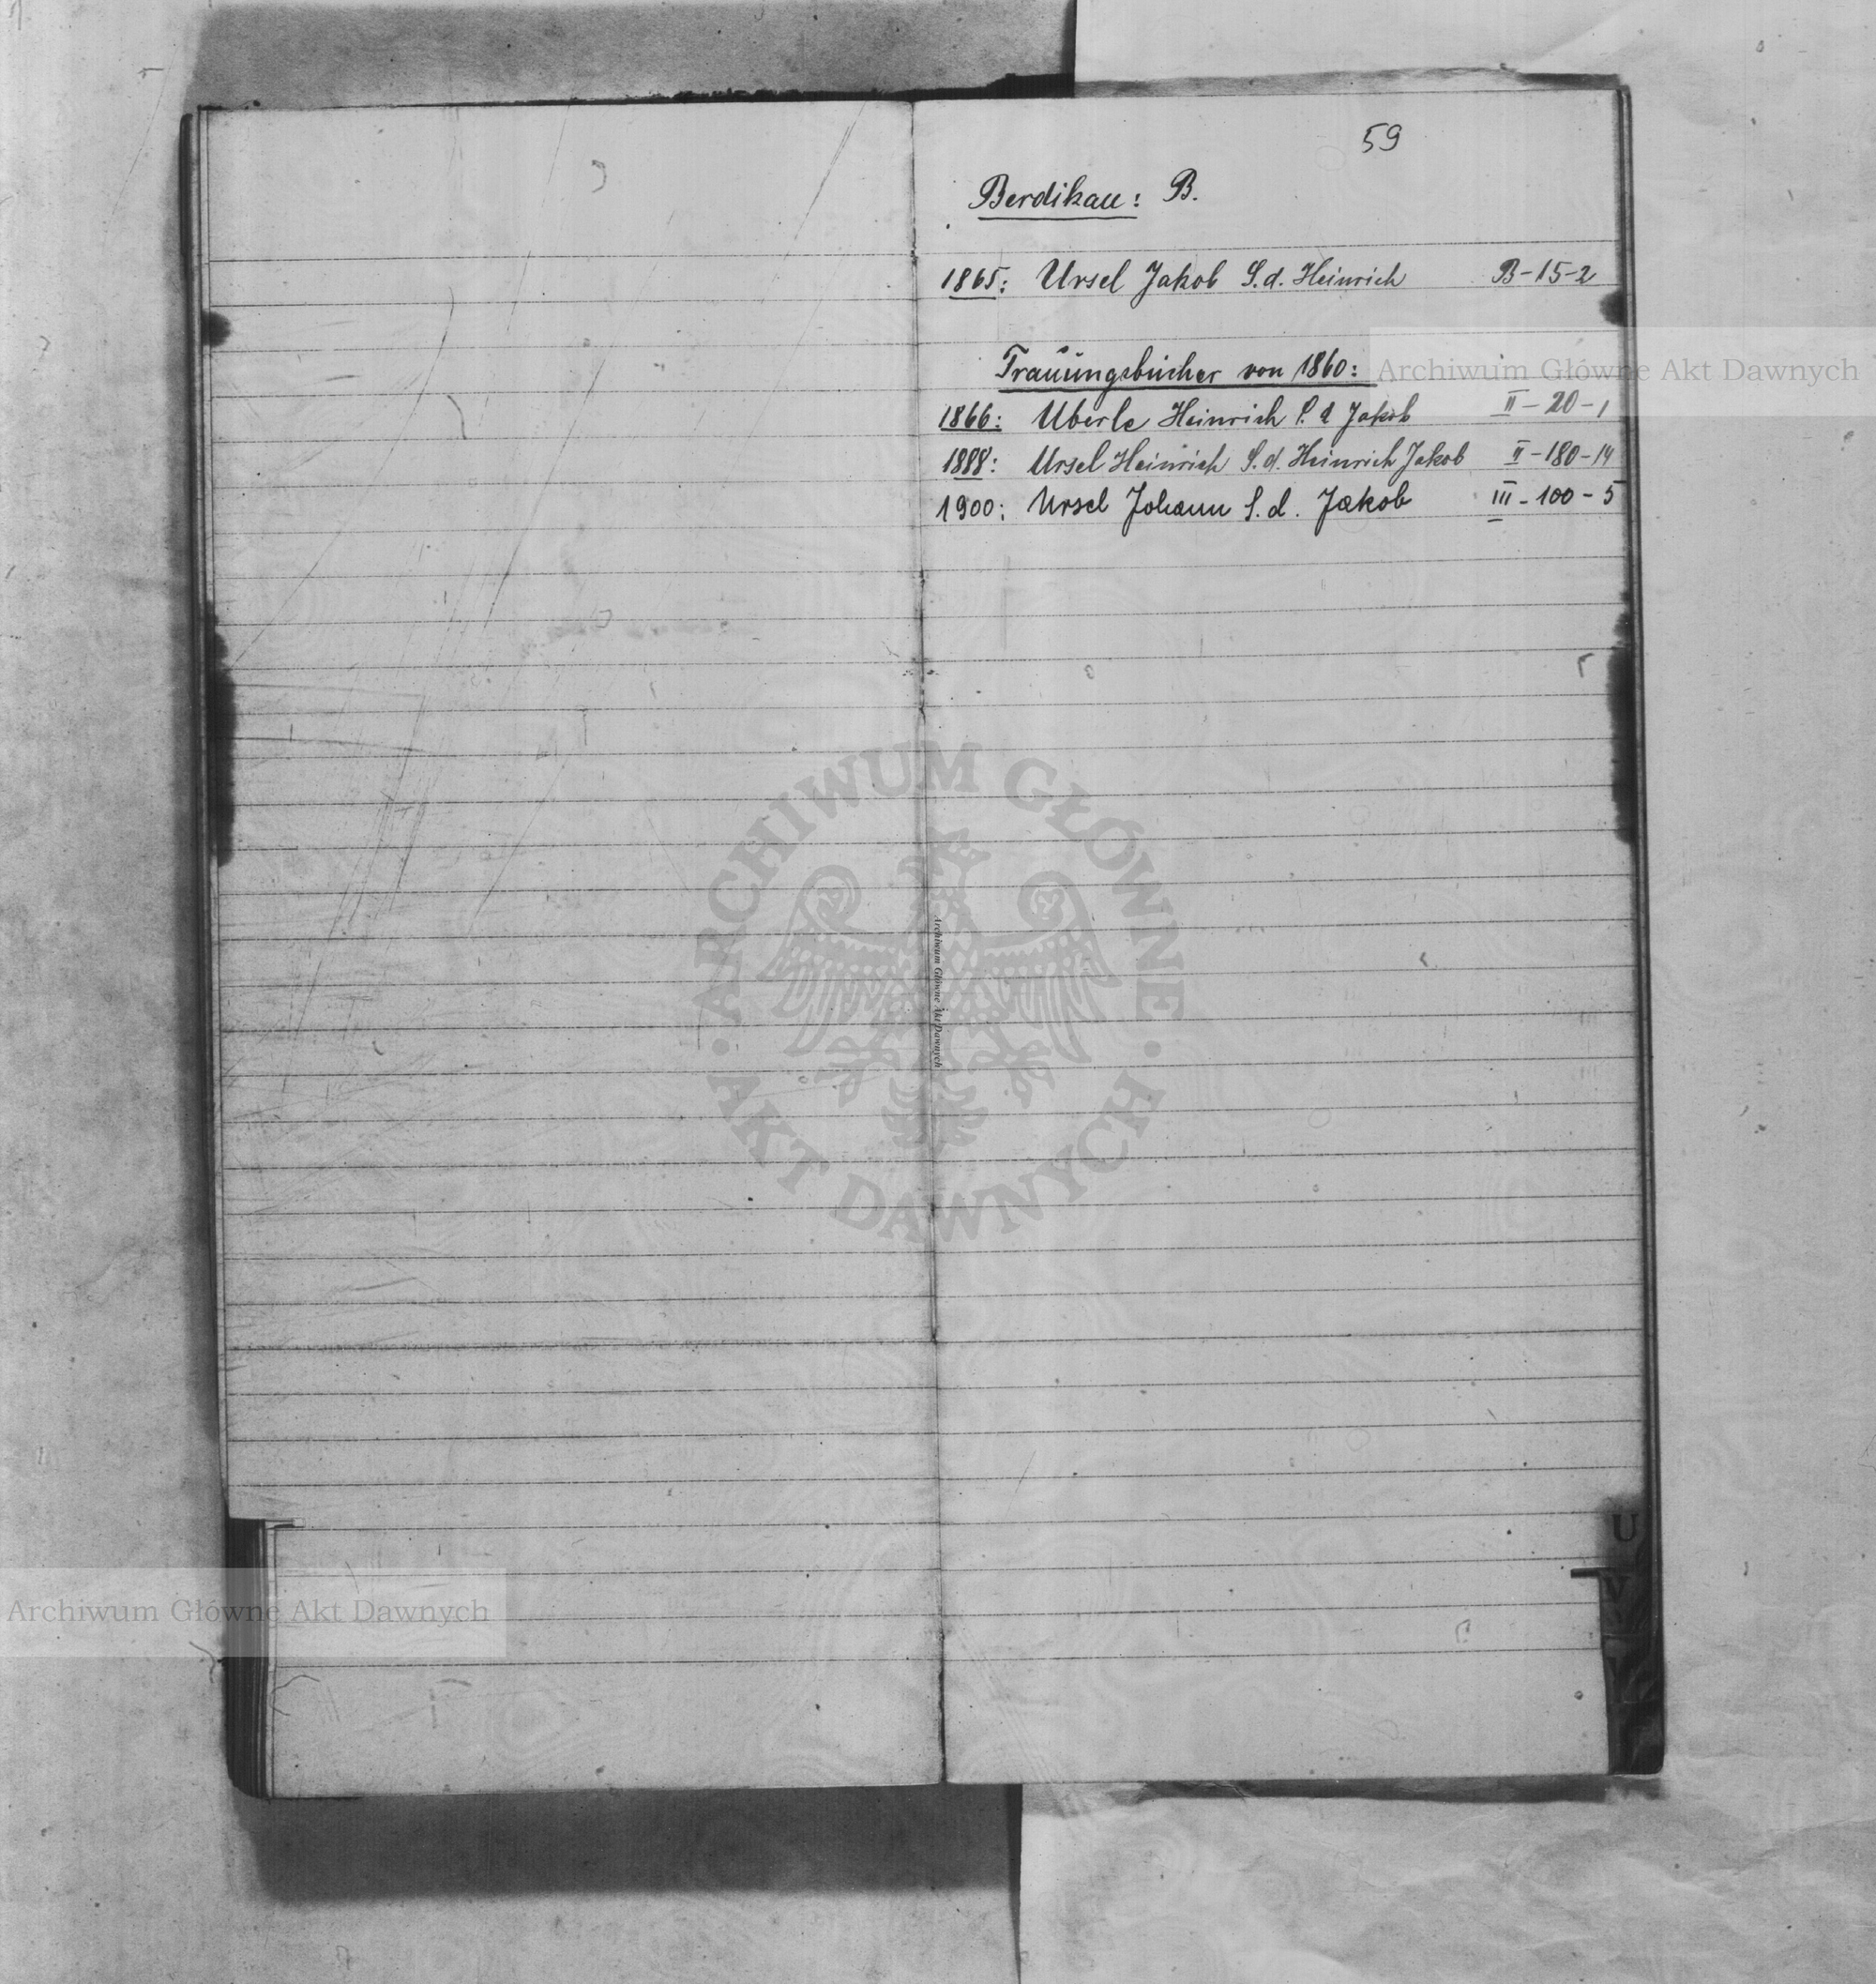 59
Berdikau: B.
1865: Ursel Jakob S.d. Heinrich B-15-2
Trauungsbücher von 1860:
Archiwum Główne Akt Dawnych
1866: Uberle Heinrich S. d Jakob II-20-1
1888: Ursel Heinrich S.d. Heinrich Jakob II-180-14
1900: Ursel Johann S.d. Jakob III-100-5
ARCHIWUM GŁÓWNE
Archiwum Główne Akt Dawnych
AKT DAWNYCH
U
V
Archiwum Główne Akt Dawnych